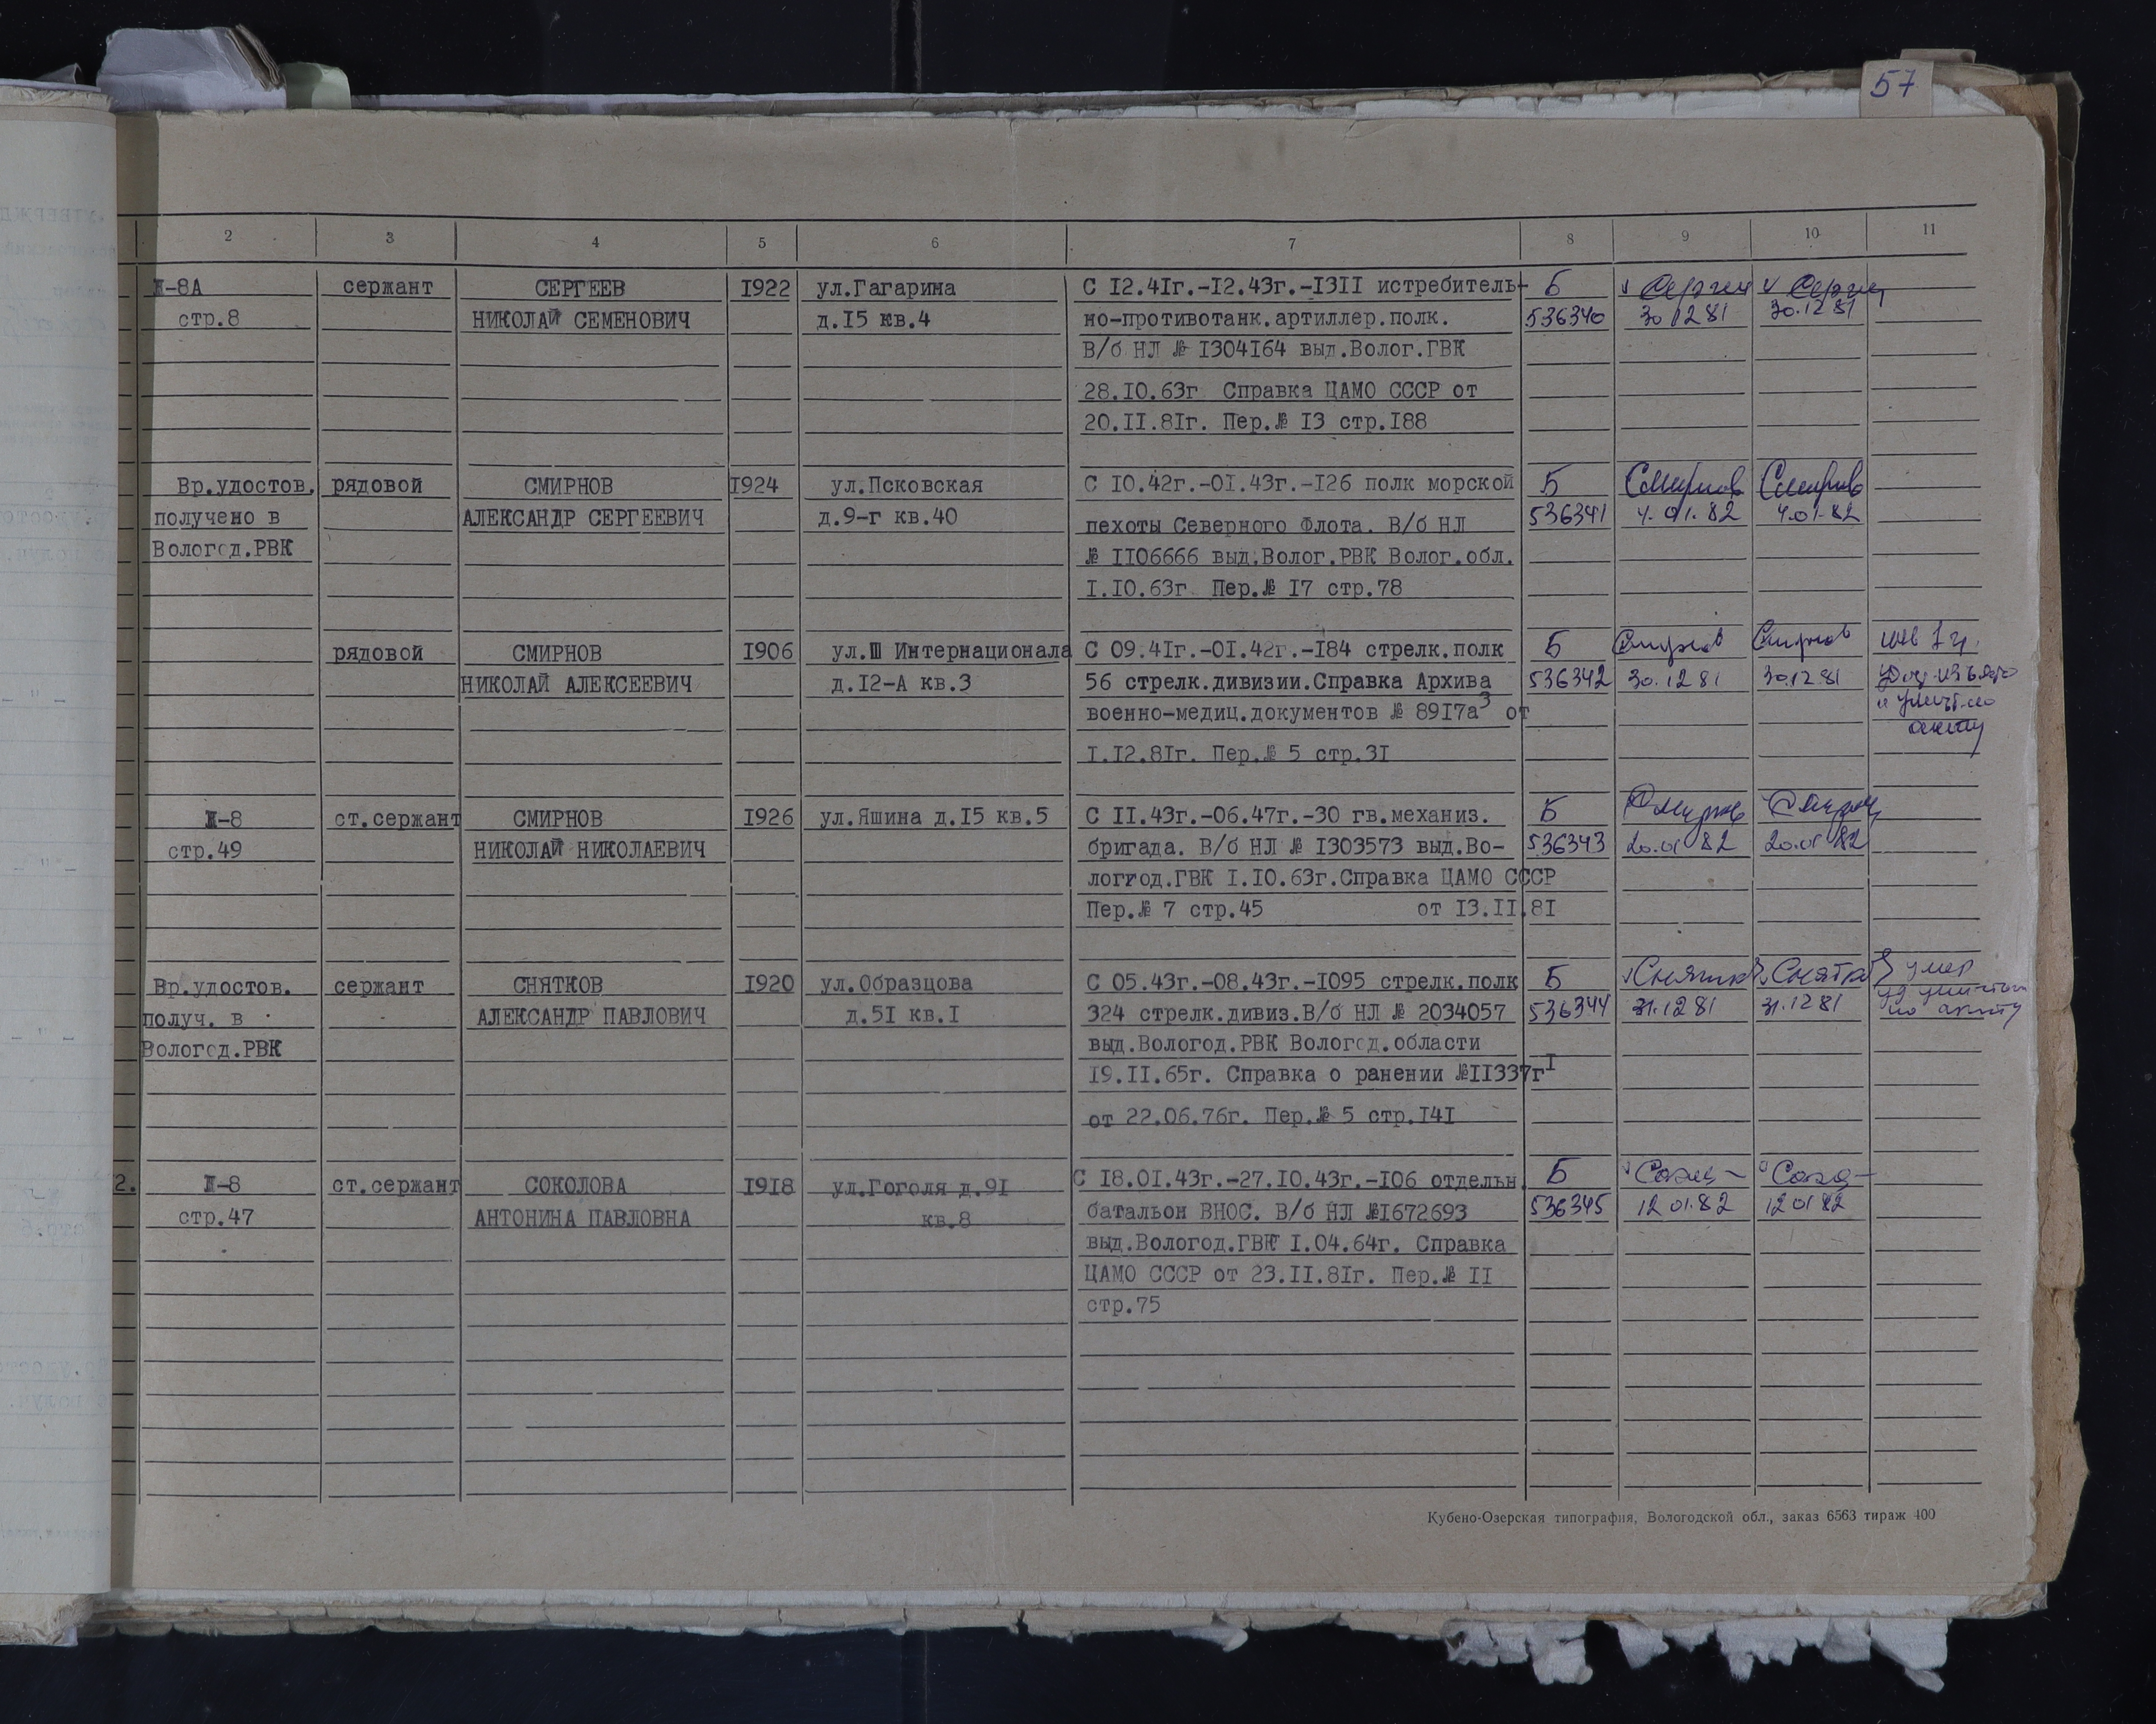 57
2 3 4 5 6 7 8 9 10 11
II-8А сержант СЕРГЕЕВ 1922 ул.Гагарина С 12.41г.-12.43г.-1311 истребитель- Б Сергеев Сергеев
стр.8 НИКОЛАЙ СЕМЕНОВИЧ д.15 кв.4 но-противотанк.артиллер.полк. 536340 30 12 81 30.12 81
В/б НЛ № 1304164 выд.Волог.ГВК
28.10.63г Справка ЦАМО СССР от
20.11.81г. Пер.№ 13 стр.188
Вр.удостов. рядовой СМИРНОВ 1924 ул.Псковская С 10.42г.-01.43г.-126 полк морской Б Смирнов Смирнов
получено в АЛЕКСАНДР СЕРГЕЕВИЧ д.9-г кв.40 пехоты Северного Флота. В/б НЛ 536341 4.01.82 4.01.82
Вологод.РВК № 1106666 выд.Волог.РВК Волог.обл.
1.10.63г Пер.№ 17 стр.78
рядовой СМИРНОВ 1906 ул.Ш Интернационала С 09.41г.-01.42г.-184 стрелк.полк Б Смирнов Смирнов инв 1 гр.
НИКОЛАЙ АЛЕКСЕЕВИЧ д.12-А кв.3 56 стрелк.дивизии.Справка Архива 536342 30.12 81 30.12.81 изъято
военно-медиц.документов № 8917а3 от и
1.12.81г. Пер.№ 5 стр.31 акту
II-8 ст.сержант СМИРНОВ 1926 ул.Яшина д.15 кв.5 С 11.43г.-06.47г.-30 гв.механиз. Б Смирнов Смирнов
стр.49 НИКОЛАЙ НИКОЛАЕВИЧ бригада. В/б НЛ № 1303573 выд.Во- 536343 20.01 82 20.01 82
логгод.ГВК 1.10.63г.Справка ЦАМО СССР
Пер.№ 7 стр.45 от 13.11.81
Вр.удостов. сержант СНЯТКОВ 1920 ул.Образцова С 05.43г.-08.43г.-1095 стрелк.полк Б Снятков Снятков умер
получ. в АЛЕКСАНДР ПАВЛОВИЧ д.51 кв.1 324 стрелк.дивиз.В/б НЛ № 2034057 536344 31.12 81 31.12 81 по акту
Вологод.РВК выд.Вологод.РВК Вологод.области
19.11.65г. Справка о ранении №11337г1
от 22.06.76г. Пер.№ 5 стр.141
2. II-8 ст.сержант СОКОЛОВА 1918 ул.Гоголя д.91 С 18.01.43г.-27.10.43г.-106 отдельн. Б
стр.47 АНТОНИНА ПАВЛОВНА кв.8 батальон ВНОС. В/б НЛ №1672693 536345 12 01.82 12 01 82
выд.Вологод.ГВК 1.04.64г. Справка
ЦАМО СССР от 23.11.81г. Пер.№ 11
стр.75
Кубено-Озерская типография, Вологодской обл., заказ 6563 тираж 400